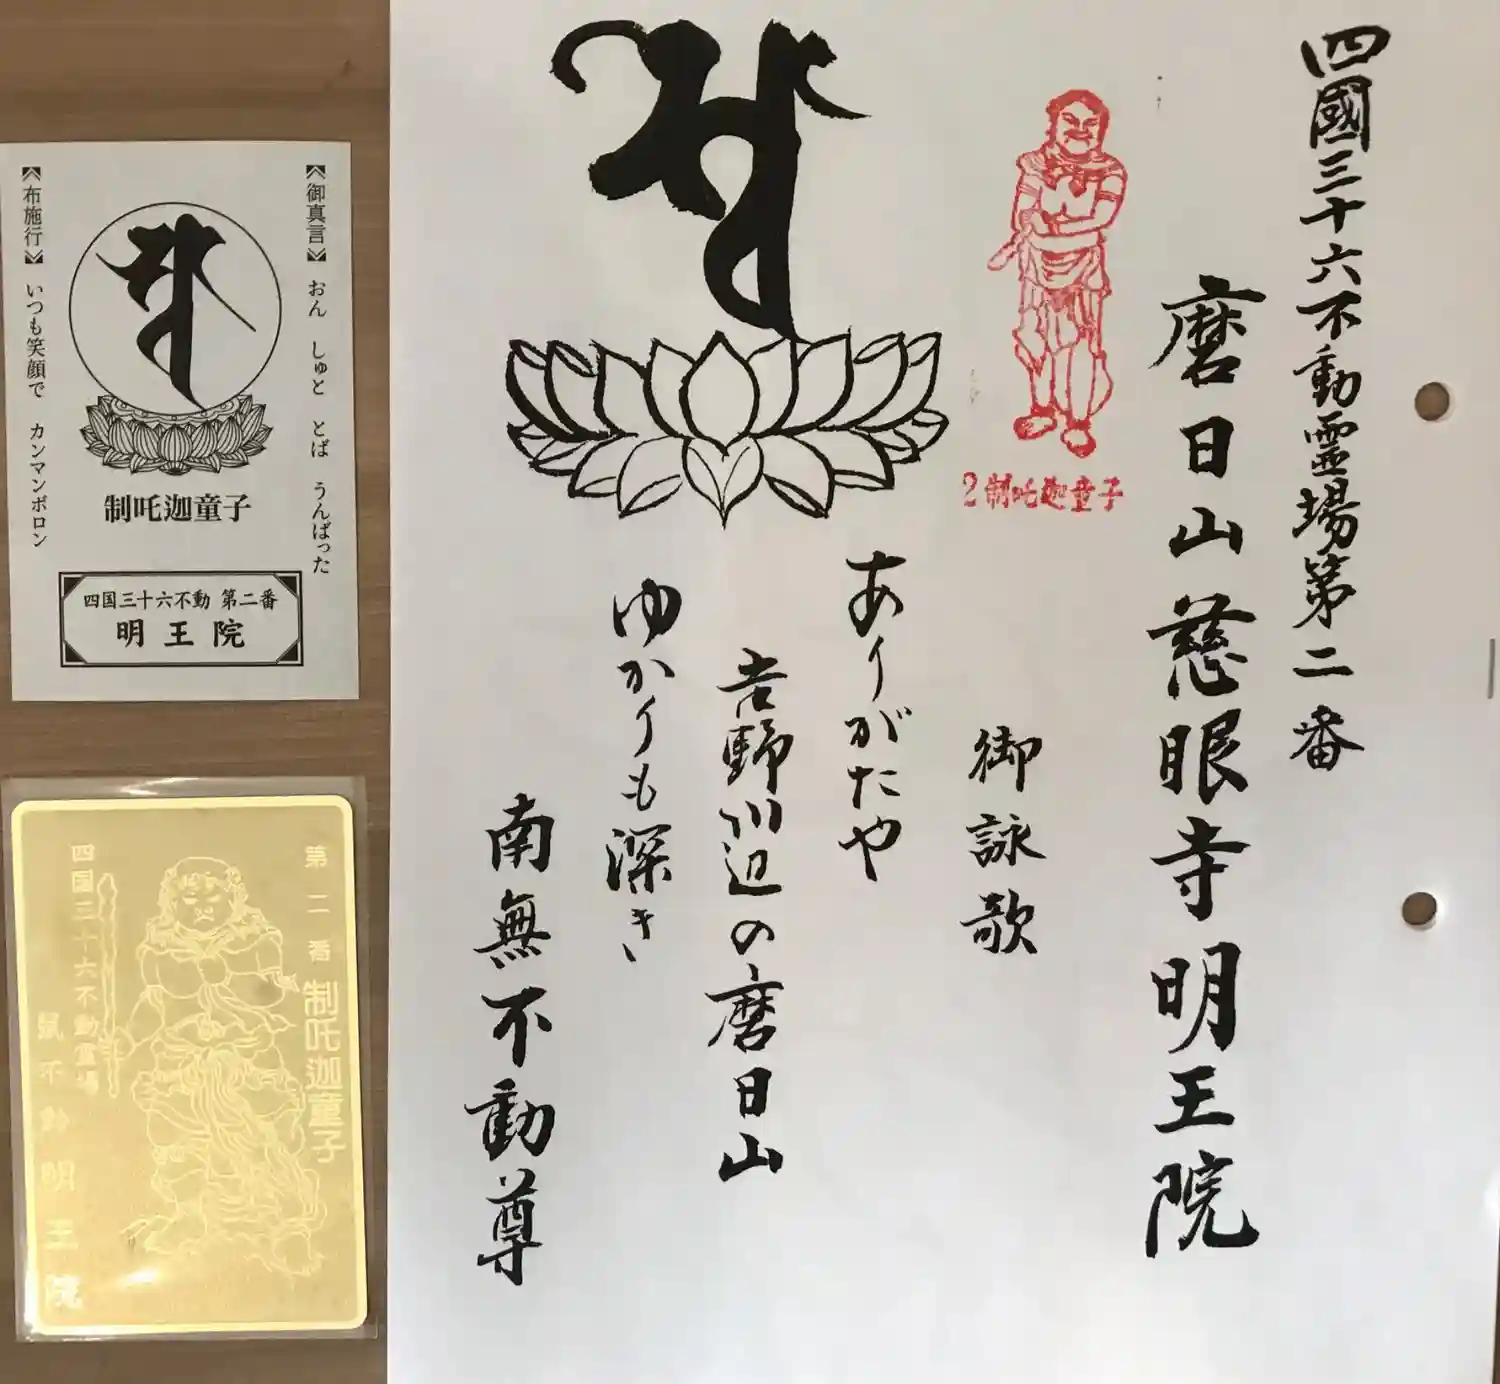 四國三十六不動霊場第二番
磨日山慈眼寺明王院
2制吒迦童子
御詠歌
ありがたや
吉野川辺の磨日山
ゆかりも深き
南無不動尊
《御真言》 おん しゅと とば うんばった
《布施行》 いつも笑顔で カンマンボロン
制吒迦童子
四国三十六不動 第二番
明王院
第二番 制吒迦童子
四国三十六不動霊場
鼠不動 明王院